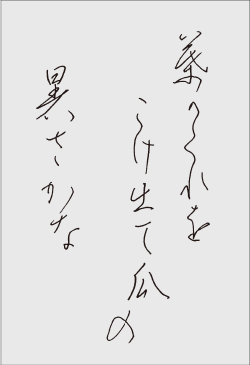 葉かくれを
こけ出て瓜の
暑さかな